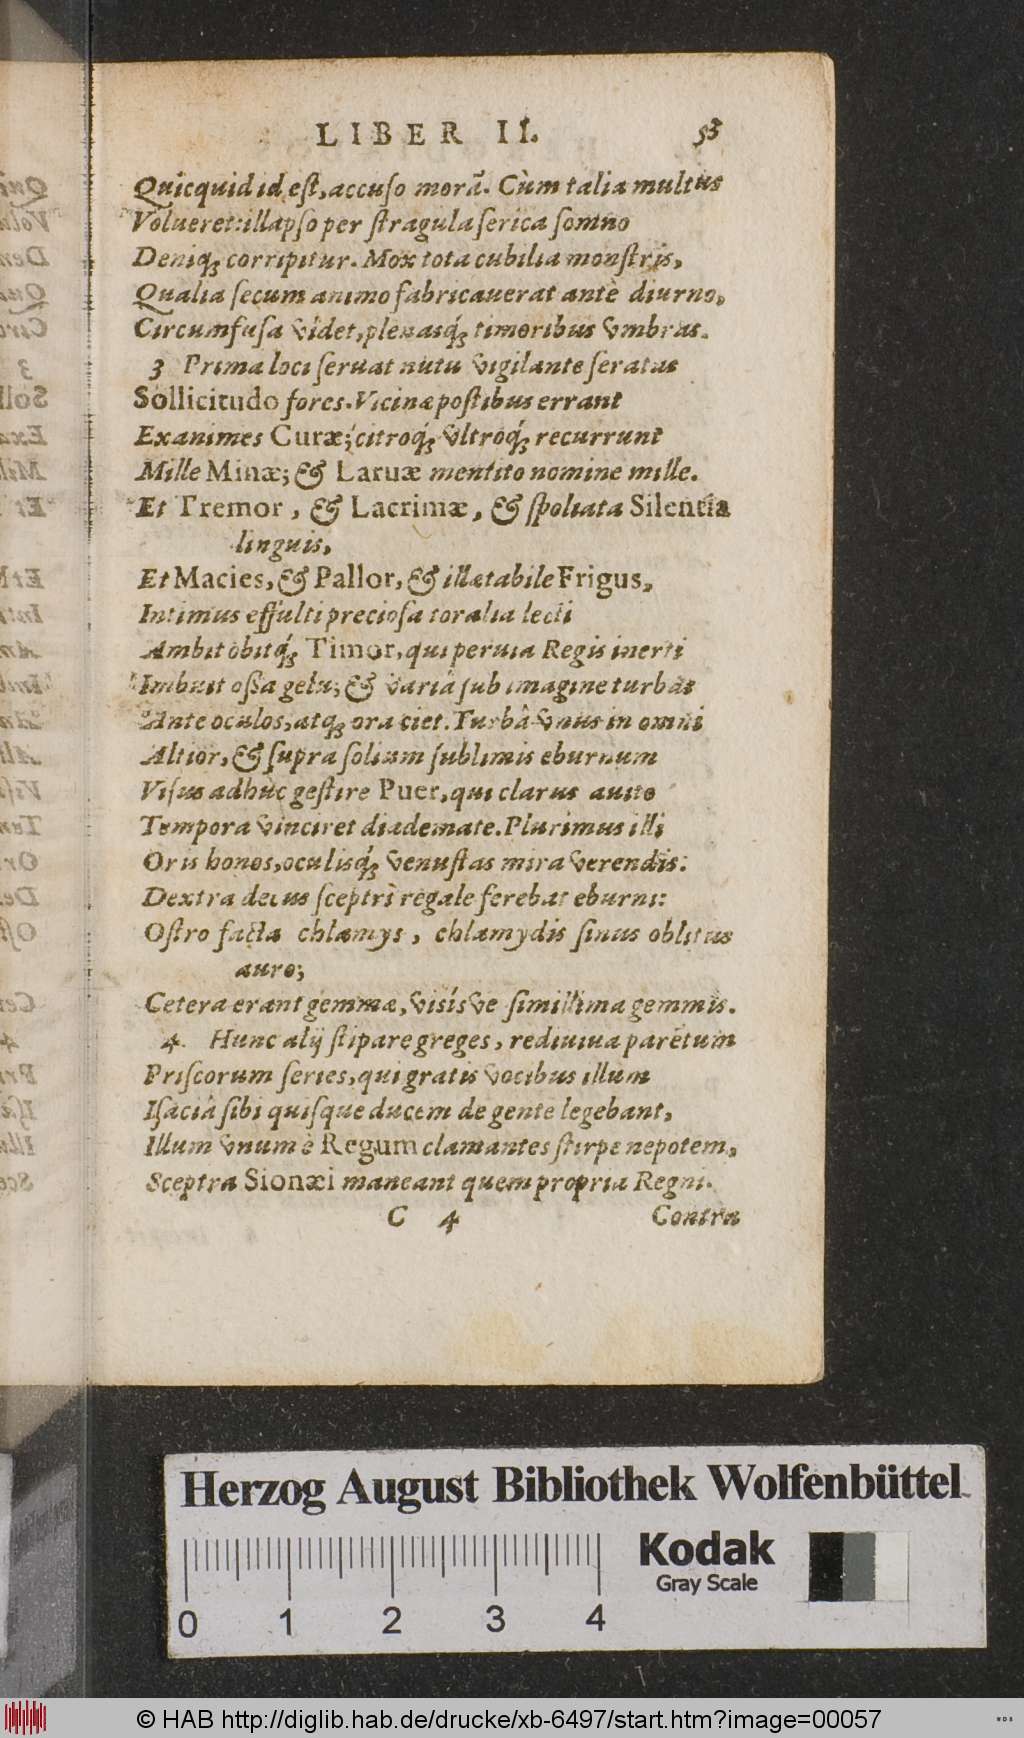 LIBER II. 53
Quicquid id est, accuso morā. Cùm talia multus
Volueret: illapso per stragula serica somno
Deniq; corripitur. Mox tota cubilia monstris,
Qualia secum animo fabricauerat antè diurno,
Circumfusa videt, plenasq́; timoribus vmbras.
3 Prima loci seruat nutu vigilante seratas
Sollicitudo fores. Vicinæ postibus errant
Exanimes Curæ; citroq́; vltroq́; recurrunt
Mille Minæ; & Laruæ mentito nomine mille.
Et Tremor, & Lacrimæ, & spoliata Silentia
linguis,
Et Macies, & Pallor, & illætabile Frigus,
Intimus effulti preciosa toralia lecti
Ambit obitq́; Timor, qui peruia Regis inerti
Imbuit ossa gelu; & variâ sub imagine turbas
Ante oculos, atq; ora ciet. Turbâ vnus in omni
Altior, & supra solium sublimis eburnum
Visus adhuc gestire Puer, qui clarus auito
Tempora vinciret diademate. Plurimus illi
Oris honos, oculisq́; venustas mira verendis:
Dextra decus sceptrî regale ferebat eburni:
Ostro facta chlamys, chlamydis sinus oblitus
auro;
Cetera erant gemmæ, visísve simillima gemmis.
4. Hunc alij stipare greges, rediuiua parētum
Priscorum series, qui gratis vocibus illum
Isaciâ sibi quisque ducem de gente legebant,
Illum vnum è Regum clamantes stirpe nepotem,
Sceptra Sionæi maneant quem propria Regni.
C 4 Contra
Herzog August Bibliothek Wolfenbüttel
Kodak
Gray Scale
0 1 2 3 4
© HAB http://diglib.hab.de/drucke/xb-6497/start.htm?image=00057